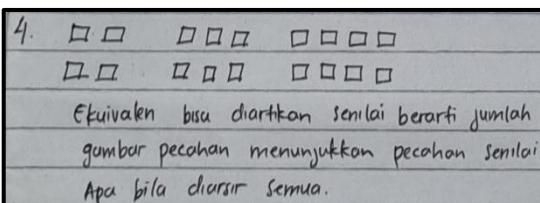 4.
Ekuivalen bisa diartikan senilai berarti jumlah
gambar pecahan menunjukkan pecahan senilai
Apa bila diarsir semua.